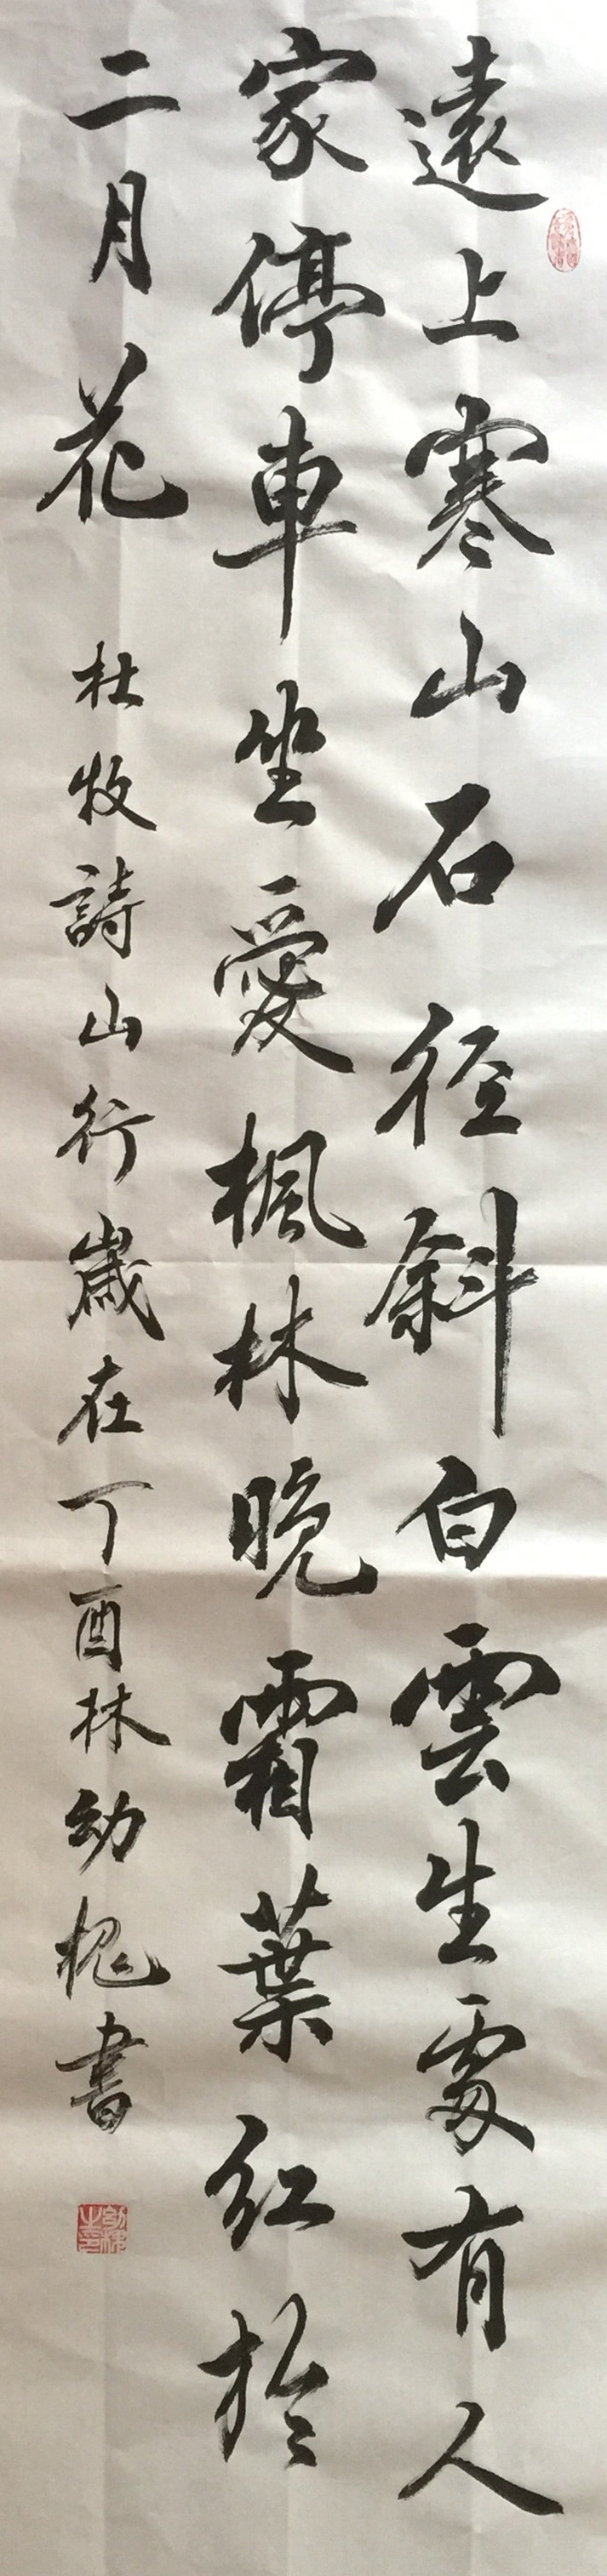 遠上寒山石径斜白雲生處有人
家停車坐愛楓林晚霜葉红於
二月花 杜牧詩山行歲在丁酉林幼槐書